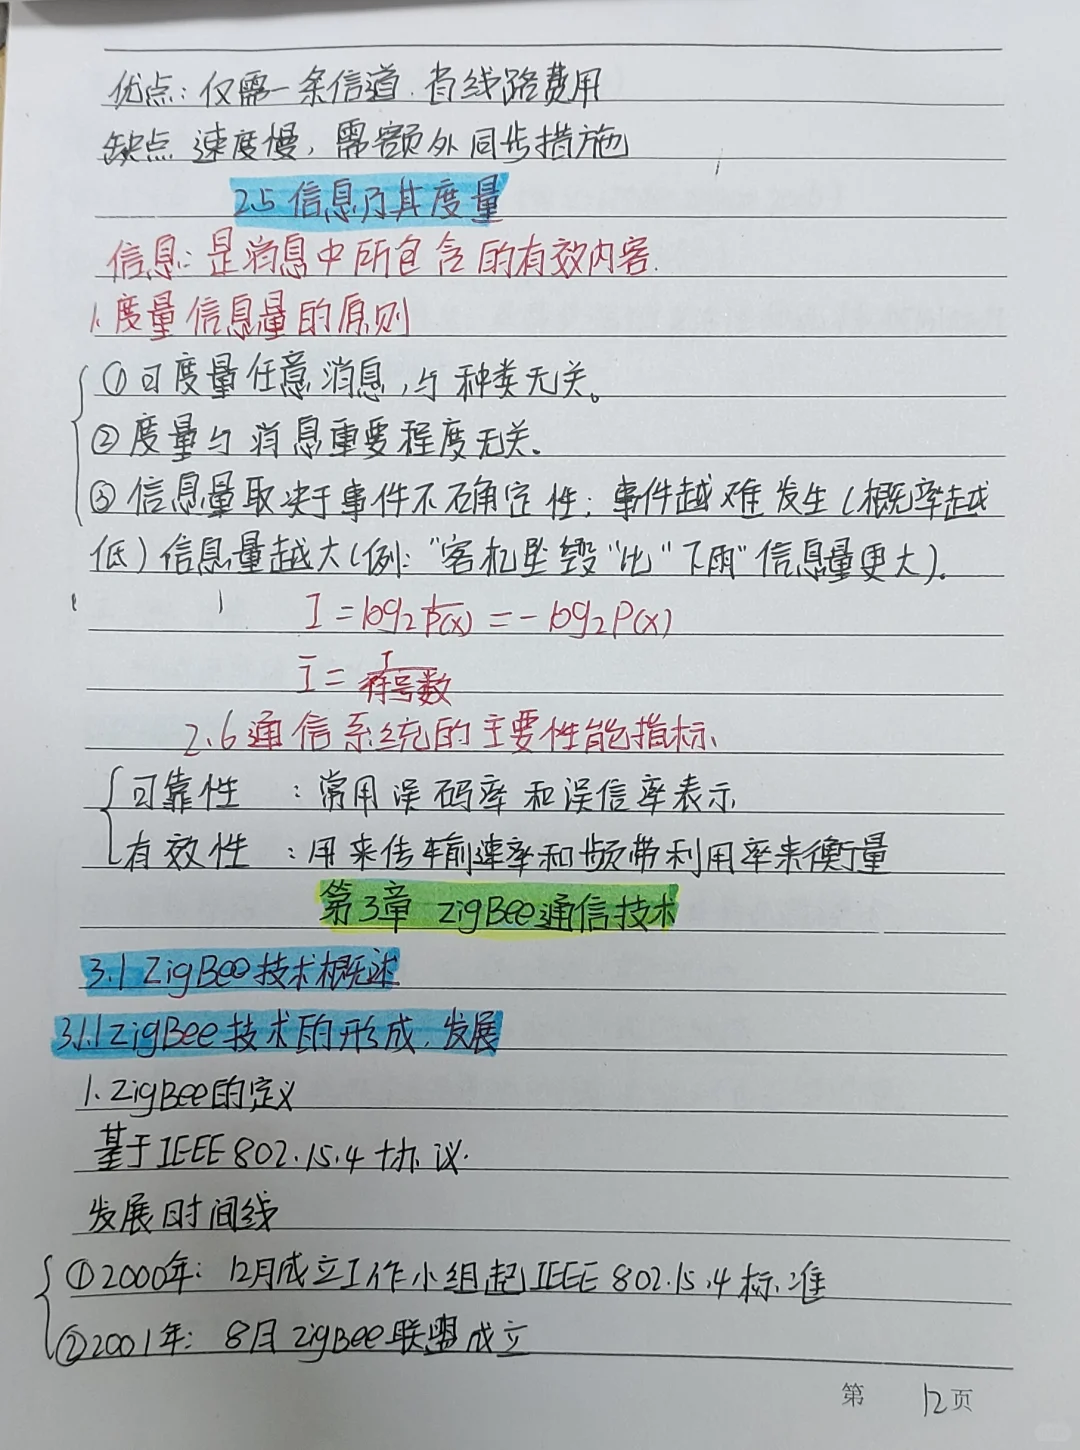 优点：仅需一条信道.省线路费用
缺点 速度慢，需额外同步措施
2.5 信息乃其度量
信息：是消息中所包含的有效内容.
1.度量信息量的原则
①可度量任意消息,与种类无关。
②度量与消息重要程度无关。
③信息量取决于事件不确定性；事件越难发生(概率越
低)信息量越大(例："客机坠毁"比"下雨"信息量更大)。
I=log₂ 1/P(x) = -log₂P(x)
Ī= I/符号数
2.6通信系统的主要性能指标
可靠性 ：常用误码率和误信率表示
有效性 ：用来传输速率和频带利用率来衡量
第3章 ZigBee通信技术
3.1 ZigBee技术概述
3.1.1 ZigBee技术的形成.发展
1. ZigBee的定义
基于IEEE 802.15.4协议.
发展时间线
①2000年：12月成立工作小组起IEEE 802.15.4标准
②2001年：8月 ZigBee联盟成立
第 12页